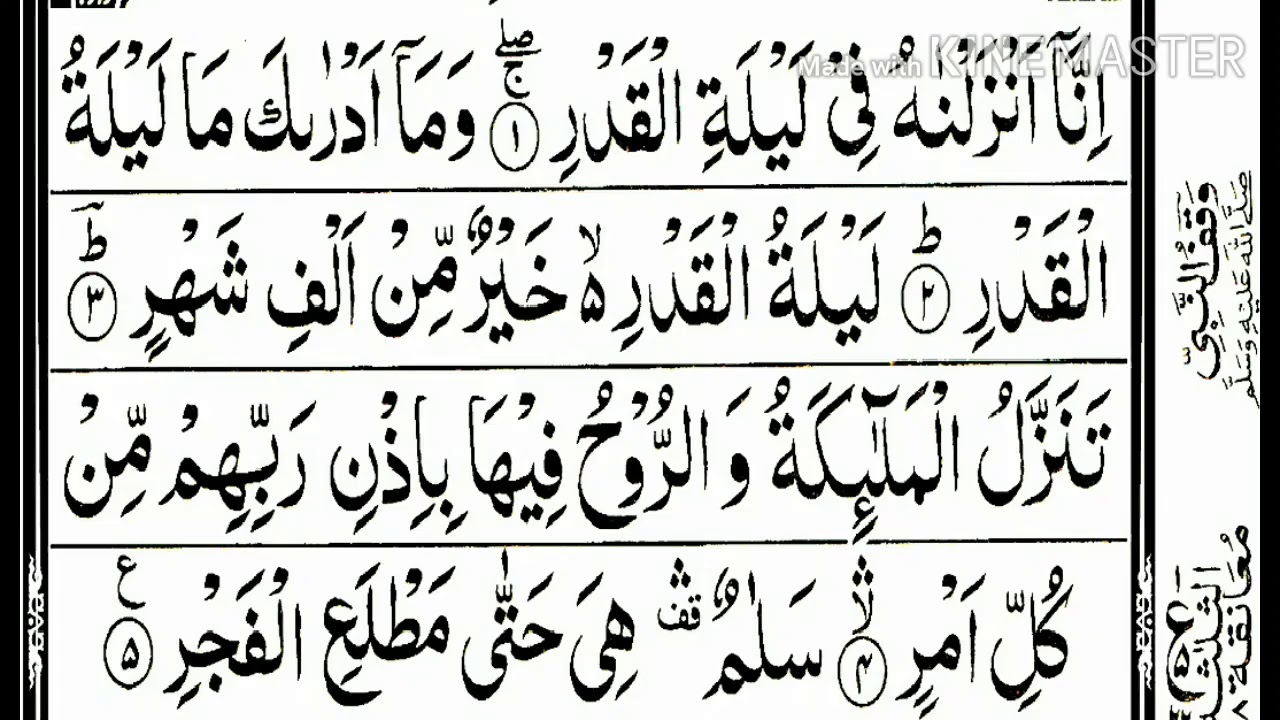 Made with KINEMASTER
اِنَّاۤ اَنْزَلْنٰهُ فِیْ لَیْلَةِ الْقَدْرِ ۚۖ ۝۱ وَ مَاۤ اَدْرٰىكَ مَا لَیْلَةُ
الْقَدْرِ ؕ ۝۲ لَیْلَةُ الْقَدْرِ ۙ۬ خَیْرٌ مِّنْ اَلْفِ شَهْرٍ ؕؔ ۝۳
تَنَزَّلُ الْمَلٰٓىِٕكَةُ وَ الرُّوْحُ فِیْهَا بِاِذْنِ رَبِّهِمْ مِّنْ
كُلِّ اَمْرٍ ۙۛ ۝۴ سَلٰمٌ ۛ۫ قف هِیَ حَتّٰى مَطْلَعِ الْفَجْرِ ۠ ۝۵
وقف النبی
صلی الله علیه وسلم
معانقة ۸